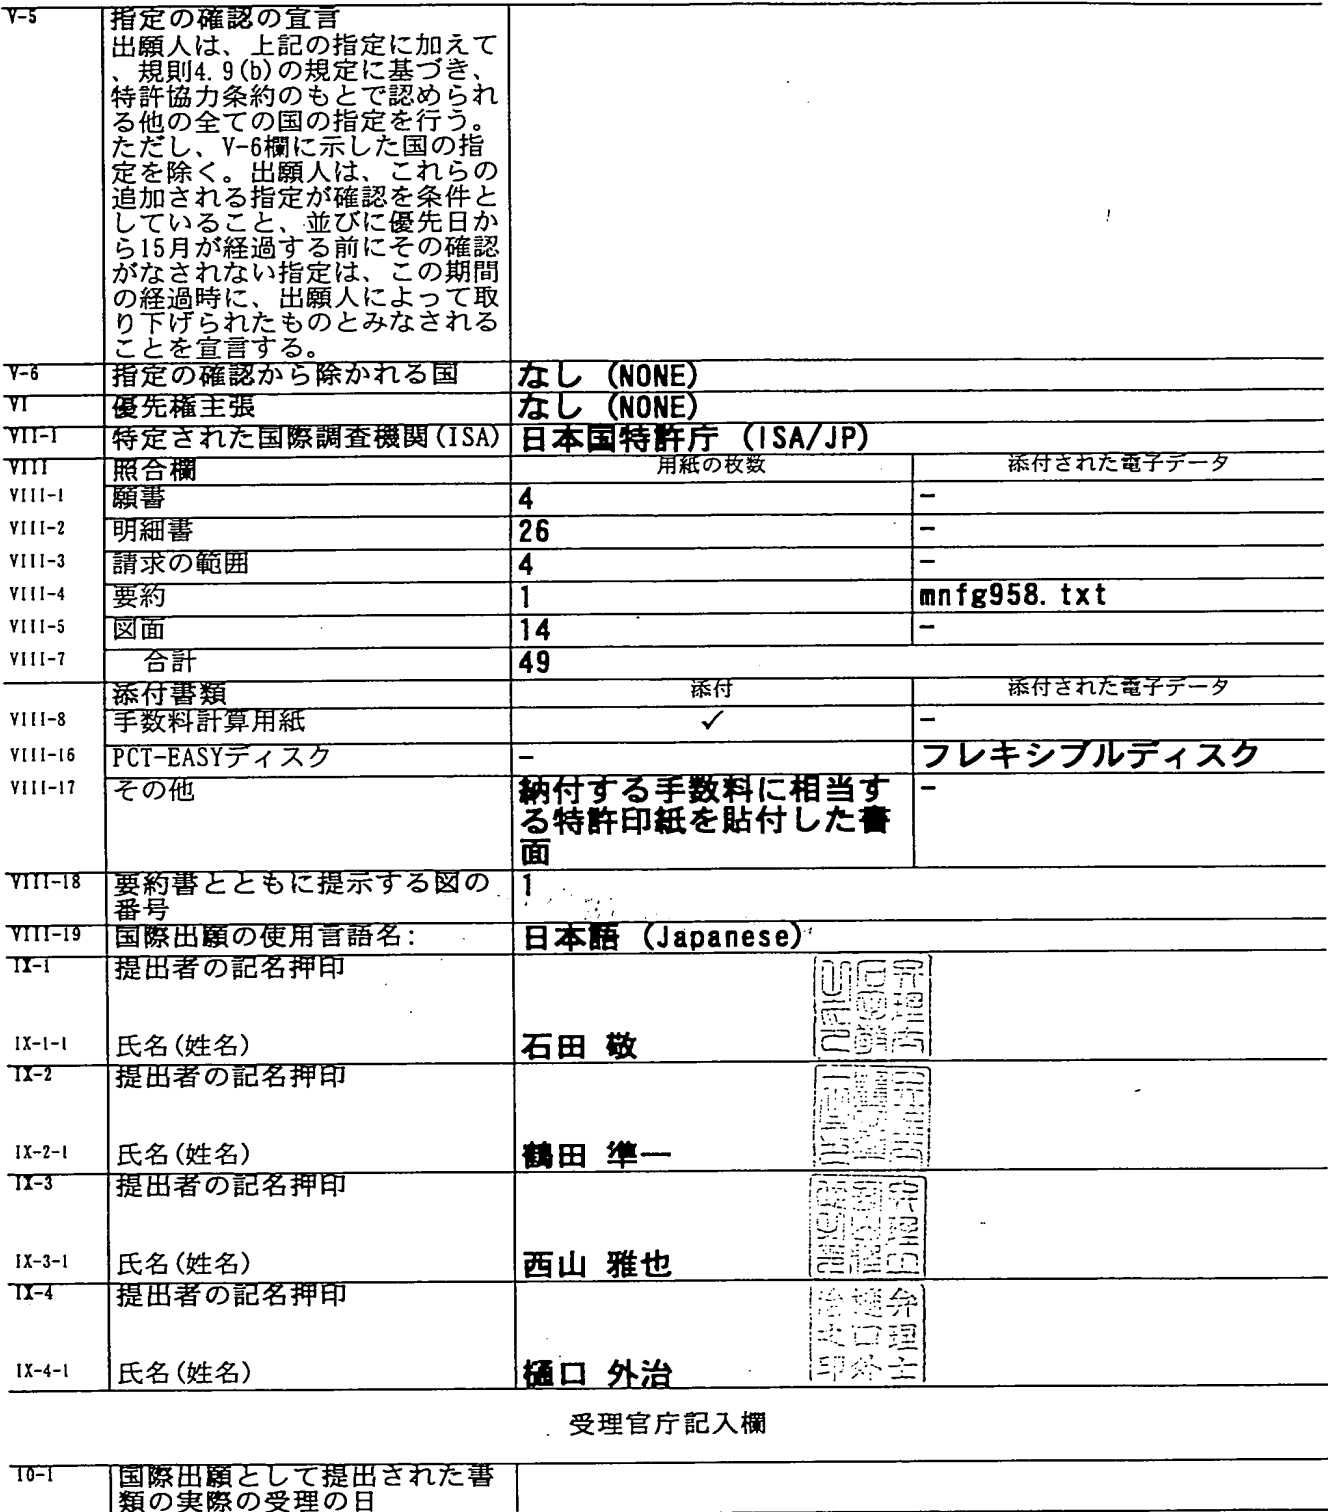 V-5 指定の確認の宣言
出願人は、上記の指定に加えて
、規則4.9(b)の規定に基づき、
特許協力条約のもとで認められ
る他の全ての国の指定を行う。
ただし、V-6欄に示した国の指
定を除く。出願人は、これらの
追加される指定が確認を条件と
していること、並びに優先日か
ら15月が経過する前にその確認
がなされない指定は、この期間
の経過時に、出願人によって取
り下げられたものとみなされる
ことを宣言する。
V-6 指定の確認から除かれる国 なし (NONE)
VI 優先権主張 なし (NONE)
VII-1 特定された国際調査機関(ISA) 日本国特許庁 (ISA/JP)
VIII 照合欄 用紙の枚数 添付された電子データ
VIII-1 願書 4 -
VIII-2 明細書 26 -
VIII-3 請求の範囲 4 -
VIII-4 要約 1 mnfg958.txt
VIII-5 図面 14 -
VIII-7 合計 49
添付書類 添付 添付された電子データ
VIII-8 手数料計算用紙 ✓ -
VIII-16 PCT-EASYディスク - フレキシブルディスク
VIII-17 その他 納付する手数料に相当す -
る特許印紙を貼付した書
面
VIII-18 要約書とともに提示する図の 1
番号
VIII-19 国際出願の使用言語名: 日本語 (Japanese)
IX-1 提出者の記名押印
IX-1-1 氏名(姓名) 石田 敬
IX-2 提出者の記名押印
IX-2-1 氏名(姓名) 鶴田 準一
IX-3 提出者の記名押印
IX-3-1 氏名(姓名) 西山 雅也
IX-4 提出者の記名押印
弁理士
樋口外
治之印
IX-4-1 氏名(姓名) 樋口 外治
受理官庁記入欄
10-1 国際出願として提出された書
類の実際の受理の日